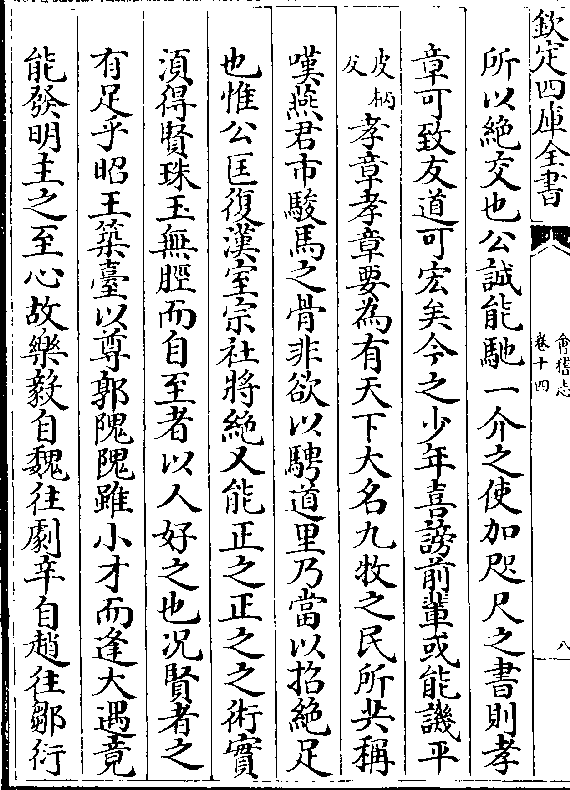 欽定四庫全書
會稽志
卷十四
八
所以絶交也公誠能馳一介之使加咫尺之書則孝
章可致友道可宏矣今之少年喜謗前輩或能譏平
皮柄
反
孝章孝章要為有天下大名九牧之民所共稱
嘆燕君市駿馬之骨非欲以騁道里乃當以招絶足
也惟公匡復漢室宗社將絶又能正之正之之術實
湏得賢珠玉無脛而自至者以人好之也况賢者之
有足乎昭王築臺以尊郭隗隗雖小才而逢大遇竟
能發明主之至心故樂毅自魏往劇辛自趙往鄒衍